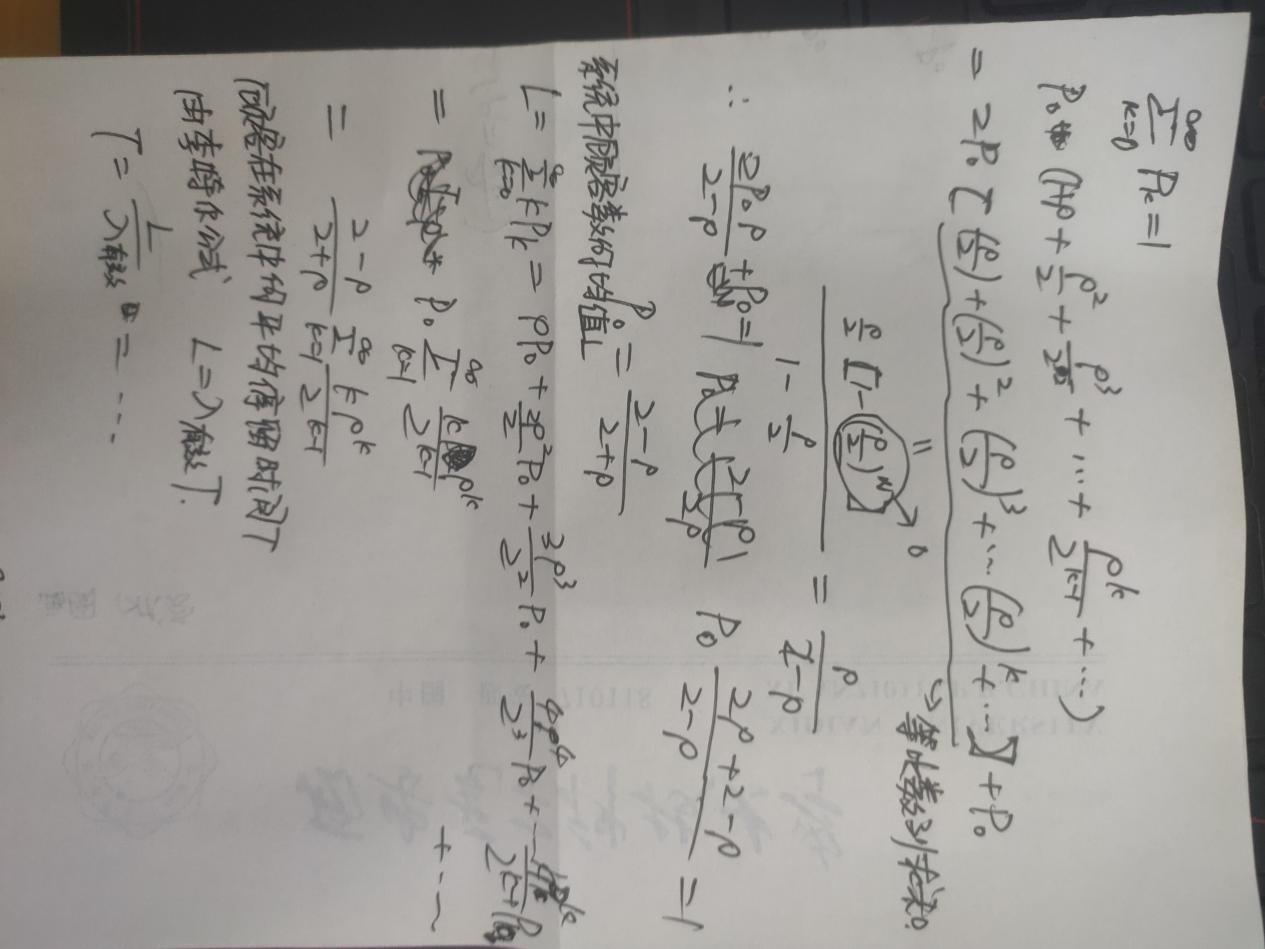 ∞
Σ Pk = 1
k=0
P0 (1+ρ + ρ²/2 + ρ³/2² + ⋯ + ρ^k/2^(k-1) + ⋯)
= 2P0 [ (ρ/2) + (ρ/2)² + (ρ/2)³ + ⋯ (ρ/2)^k + ⋯ ] + P0
→ 等比数列求和.
= ρ/2 [1 - (ρ/2)^N] → 0 / 1 - ρ/2 = ρ/2-ρ
∴ 2P0ρ/2-ρ + P0 = 1 P0 2ρ+2-ρ/2-ρ = 1
P0 = 2-ρ/2+ρ
系统中顾客数的均值L
L = Σ(k=0→∞) kPk = ρP0 + 2ρ²/2 P0 + 3ρ³/2² P0 + 4ρ⁴/2³ P0 + ⋯
+ ⋯
= P0 Σ(k=1→∞) kρ^k/2^(k-1)
= 2-ρ/2+ρ Σ(k=1→∞) kρ^k/2^(k-1)
顾客在系统中的平均停留时间T
由李特尔公式 L = λ有效T.
T = L/λ有效 = ⋯